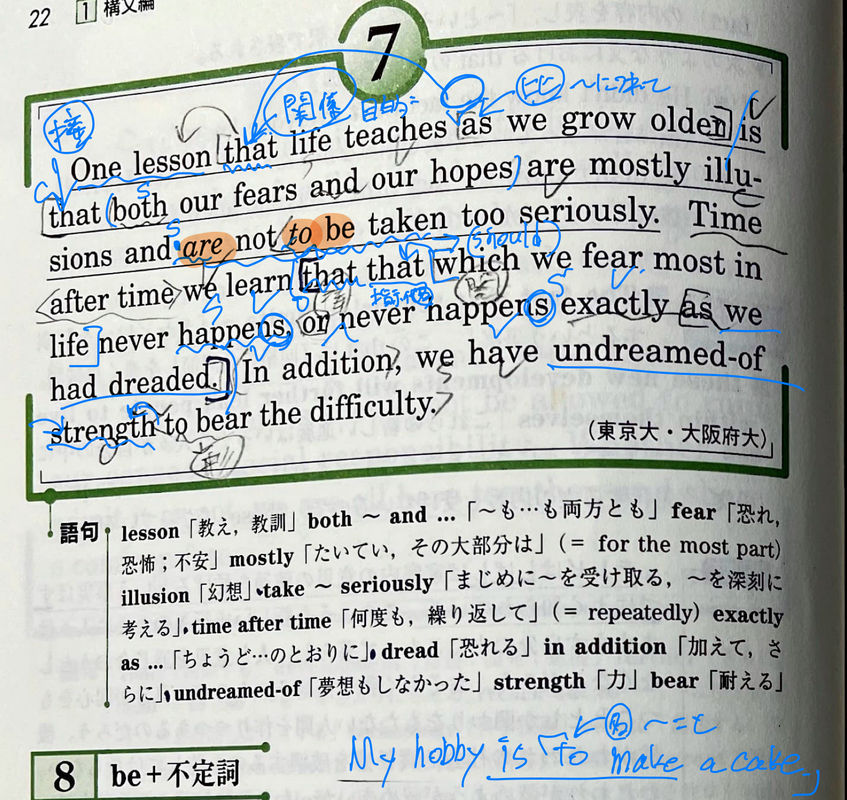 22 1 構文編
7
関係 目的 比 〜につれて
One lesson that life teaches as we grow older is
that both our fears and our hopes are mostly illu-
sions and are not to be taken too seriously. Time
should
after time we learn that that which we fear most in
life never happens, or never happens exactly as we
had dreaded. In addition, we have undreamed-of
strength to bear the difficulty.
(東京大・大阪府大)
語句 lesson「教え,教訓」 both ~ and …「〜も…も両方とも」 fear「恐れ,
恐怖;不安」 mostly「たいてい,その大部分は」(= for the most part)
illusion「幻想」 take ~ seriously「まじめに〜を受け取る,〜を深刻に
考える」 time after time「何度も,繰り返して」(= repeatedly) exactly
as …「ちょうど…のとおりに」 dread「恐れる」 in addition「加えて,さ
らに」 undreamed-of「夢想もしなかった」 strength「力」 bear「耐える」
〜こと
My hobby is to make a cake.
8 be+不定詞